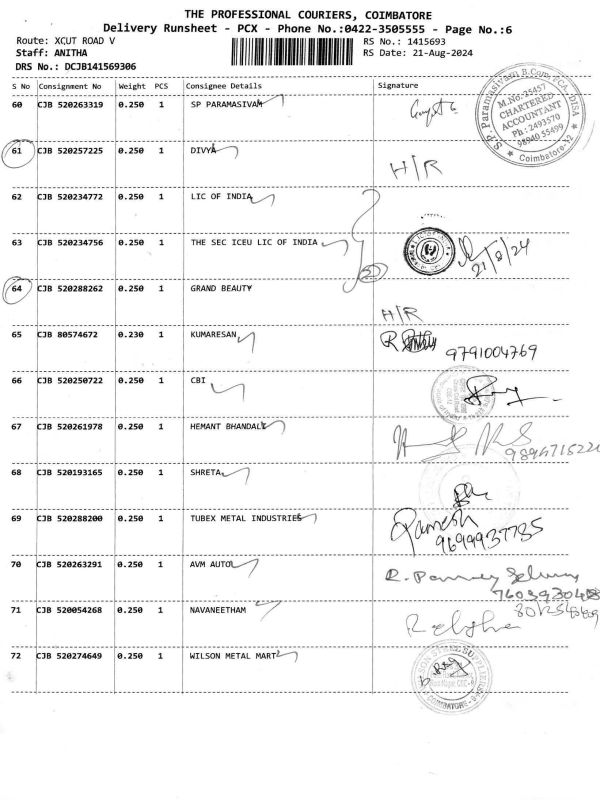 THE PROFESSIONAL COURIERS, COIMBATORE
Delivery Runsheet - PCX - Phone No.:0422-3505555 - Page No.:6
Route: XCUT ROAD V RS No.: 1415693
Staff: ANITHA RS Date: 21-Aug-2024
DRS No.: DCJB141569306
S No Consignment No Weight PCS Consignee Details Signature
60 CJB 520263319 0.250 1 SP PARAMASIVAM
S.P. Paramasivam B.Com, FCA, DISA
M.No. 25457
CHARTERED
ACCOUNTANT
Ph: 2493570
98940 55499
Coimbatore-12
61 CJB 520257225 0.250 1 DIVYA H/R
62 CJB 520234772 0.250 1 LIC OF INDIA
63 CJB 520234756 0.250 1 THE SEC ICEU LIC OF INDIA 21/8/24
2
64 CJB 520288262 0.250 1 GRAND BEAUTY H/R
65 CJB 80574672 0.230 1 KUMARESAN R 9791004769
66 CJB 520250722 0.250 1 CBI
67 CJB 520261978 0.250 1 HEMANT BHANDAL
68 CJB 520193165 0.250 1 SHRETA
69 CJB 520288200 0.250 1 TUBEX METAL INDUSTRIES Ramesh
9699937785
70 CJB 520263291 0.250 1 AVM AUTO R.
71 CJB 520054268 0.250 1 NAVANEETHAM
72 CJB 520274649 0.250 1 WILSON METAL MART
COIMBATORE